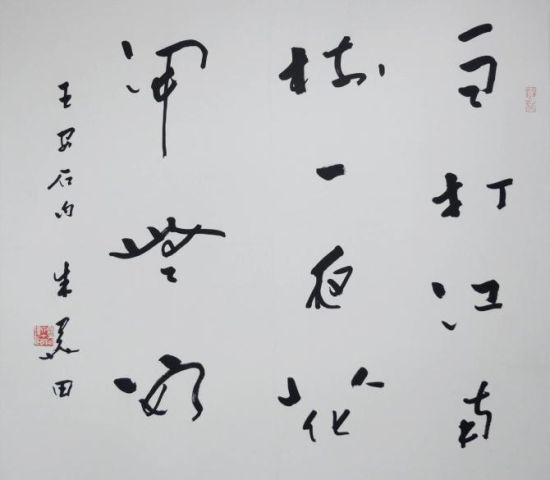 雨打江南
樹一夜花
開無數
王安石句 朱 田